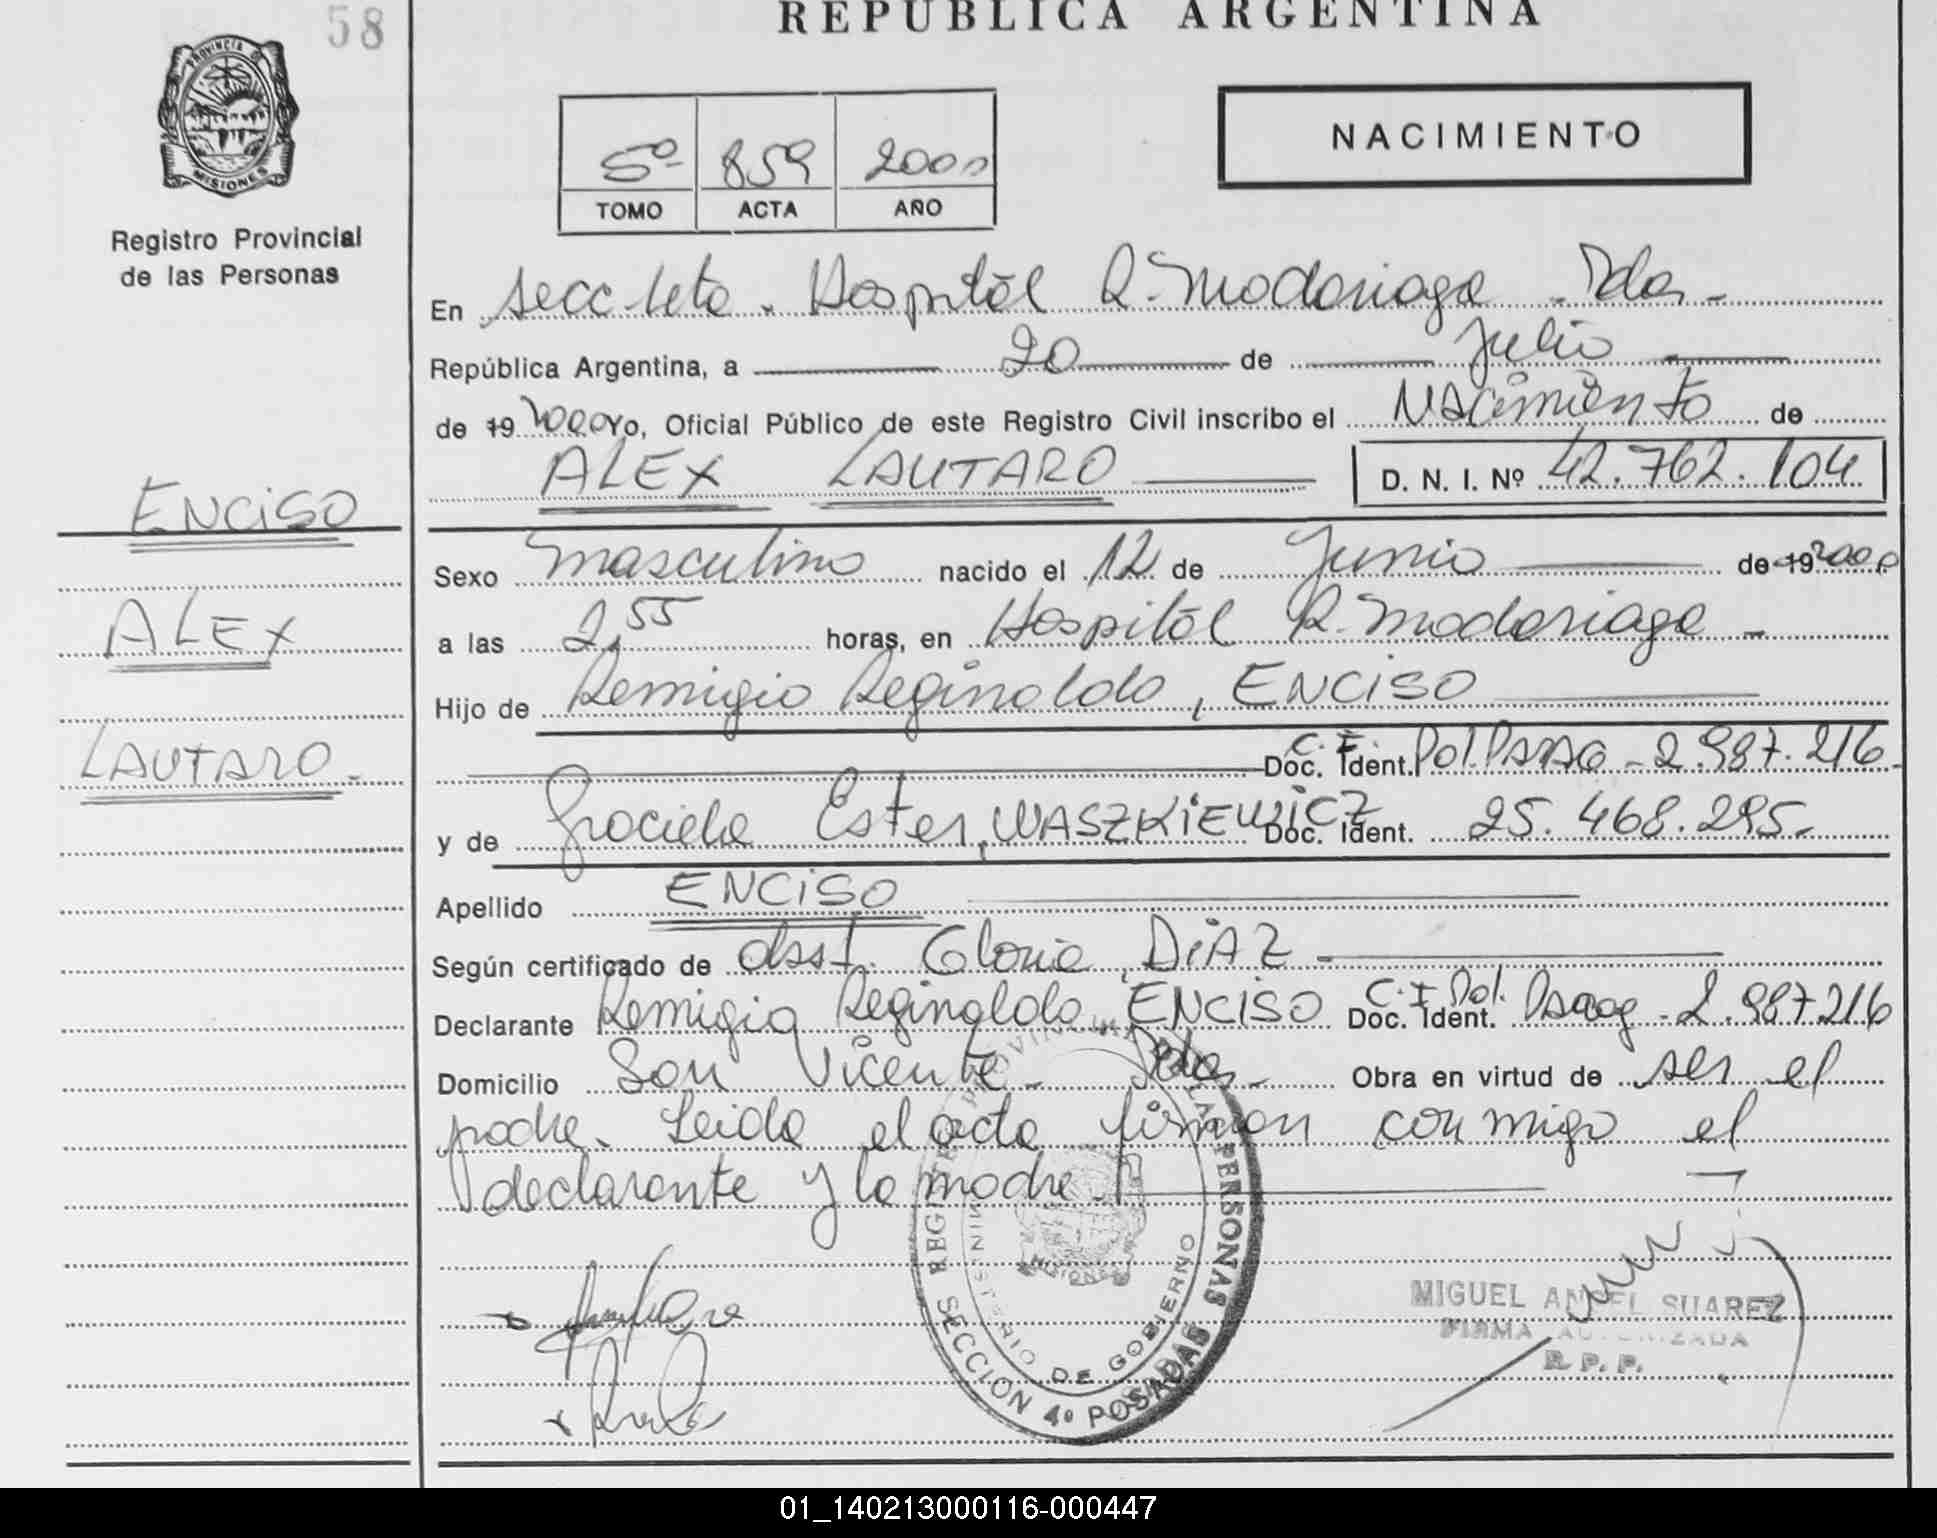 58
REPUBLICA ARGENTINA
PROVINCIA DE
MISIONES
Registro Provincial
de las Personas
NACIMIENTO
5º 859 2000
TOMO ACTA AÑO
En Secc 4ta. Hospital R. Madariaga - Pdas -
República Argentina, a 20 de Julio
de 19 2000 Yo, Oficial Público de este Registro Civil inscribo el Nacimiento de
ALEX LAUTARO D. N. I. Nº 42.762.104
ENCISO
ALEX
LAUTARO.-
Sexo masculino nacido el 12 de Junio de 19 2000
a las 2,55 horas, en Hospital R. Madariaga -
Hijo de Remigio Reginaldo, ENCISO
Doc. Ident. C.I. Pol. PARAG - 2.987.216-
y de Graciela Ester, WASZKIEWICZ Doc. Ident. 25.468.295.-
Apellido ENCISO
Según certificado de obst. Gloria, DIAZ -
Declarante Remigio Reginaldo, ENCISO Doc. Ident. C.I. Pol. Parag - 2.987.216
Domicilio San Vicente - Pdas - Obra en virtud de ser el
padre. Leida el acta firman conmigo el
declarante y la madre.
REGISTRO PROVINCIAL DE LAS PERSONAS
MINISTERIO DE GOBIERNO
MISIONES
SECCION 4º POSADAS
MIGUEL ANGEL SUAREZ
FIRMA AUTORIZADA
R. P. P.
01_140213000116-000447